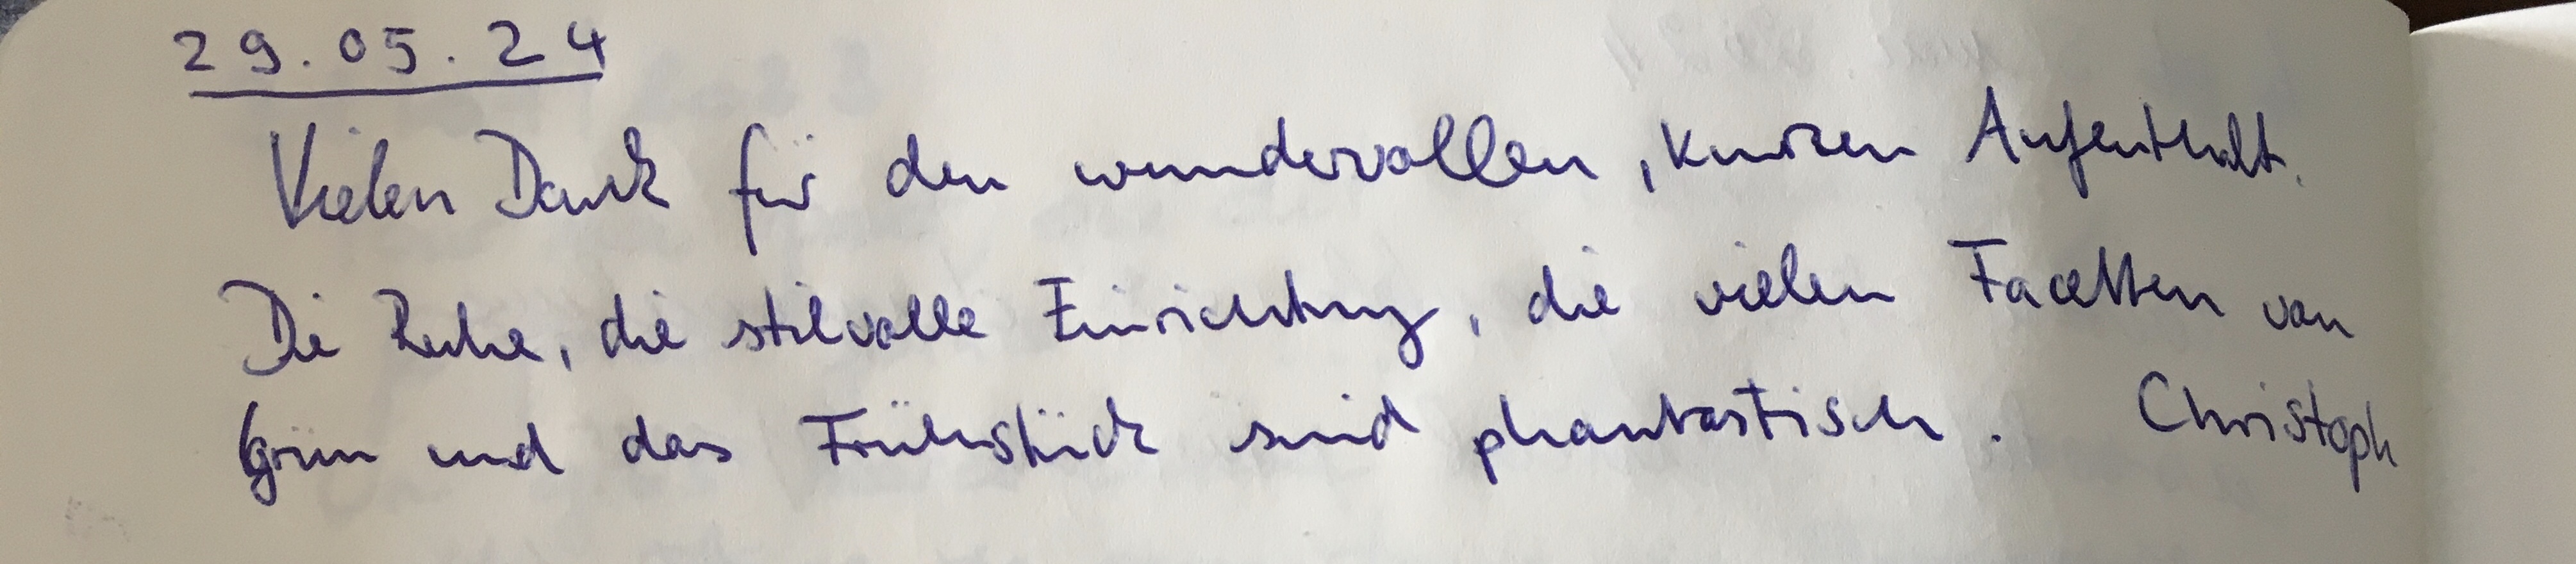 29.05.24
Vielen Dank für den wundervollen, kurzen Aufenthalt.
Die Ruhe, die stilvolle Einrichtung, die vielen Facetten von
Grün und das Frühstück sind phantastisch. Christoph